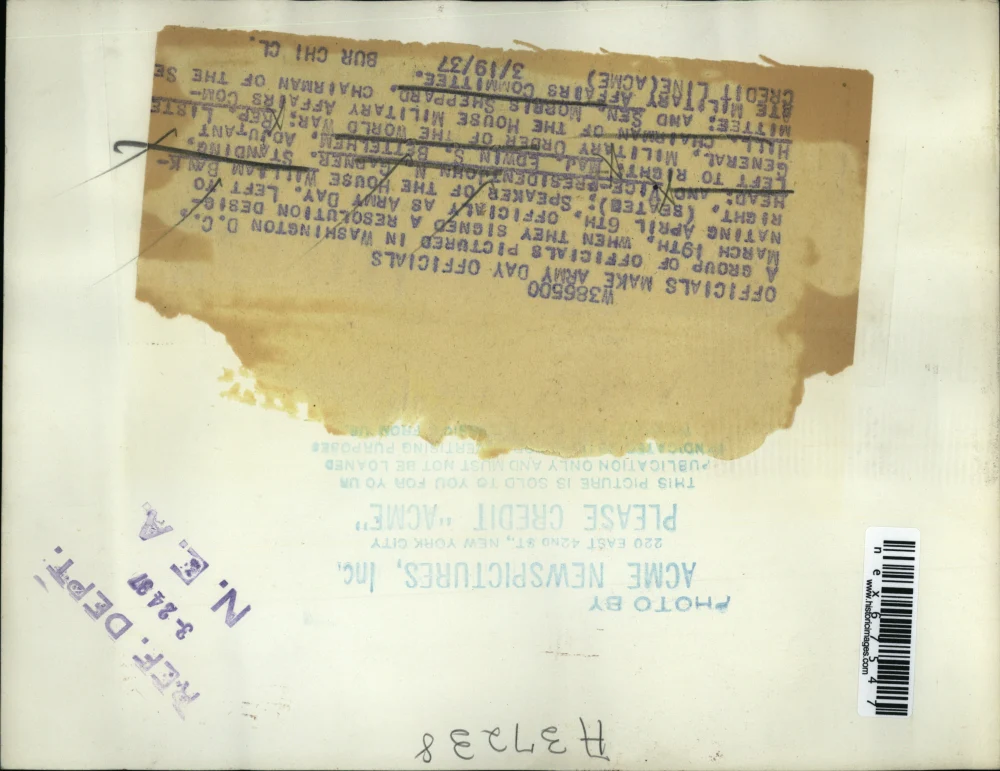 A37238
PHOTO BY
ACME NEWSPICTURES, Inc.
220 EAST 42ND ST., NEW YORK CITY
PLEASE CREDIT "ACME"
THIS PICTURE IS SOLD TO YOU FOR YOUR
PUBLICATION ONLY AND MUST NOT BE LOANED
ADVERTISING PURPOSES
FROM US
REF. DEPT.
3-24-37
N. E. A
W386500
OFFICIALS MAKE ARMY DAY OFFICIALS
A GROUP OF OFFICIALS PICTURED IN WASHINGTON D.C.
MARCH 19TH. WHEN THEY SIGNED A RESOLUTION DESIG-
NATING APRIL 6TH. OFFICIALLY AS ARMY DAY. LEFT TO
RIGHT. (SEATED); SPEAKER OF THE HOUSE WILLIAM BANK-
HEAD: AND VICE-PRESIDENT JOHN N. GARNER. STANDING.
LEFT TO RIGHT: MAJ. EDWIN S. BETTELHEM. ADJUTANT
GENERAL. MILITARY ORDER OF THE WORLD WAR: REP. LISTE
HILL. CHAIRMAN OF THE HOUSE MILITARY AFFAIRS COM-
MITTEE: AND SEN. MORRIS SHEPPARD CHAIRMAN OF THE SE
ATE MILITARY AFFAIRS COMMITTEE.
CREDIT LINE (ACME) 3/19/37 BUR CHI CL.
www.historicimages.com
nex67547